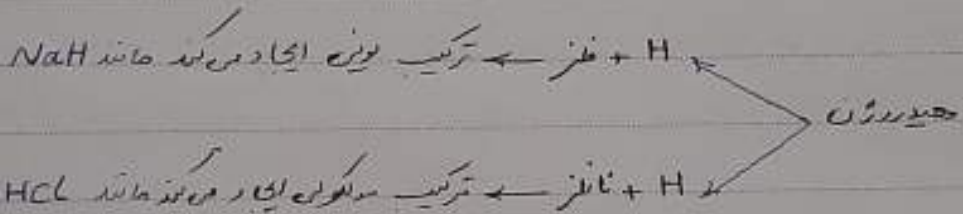 هیدروژن
H + فلز ← ترکیب یونی ایجاد می‌کند مانند NaH
H + نافلز ← ترکیب مولکولی ایجاد می‌کند مانند HCl